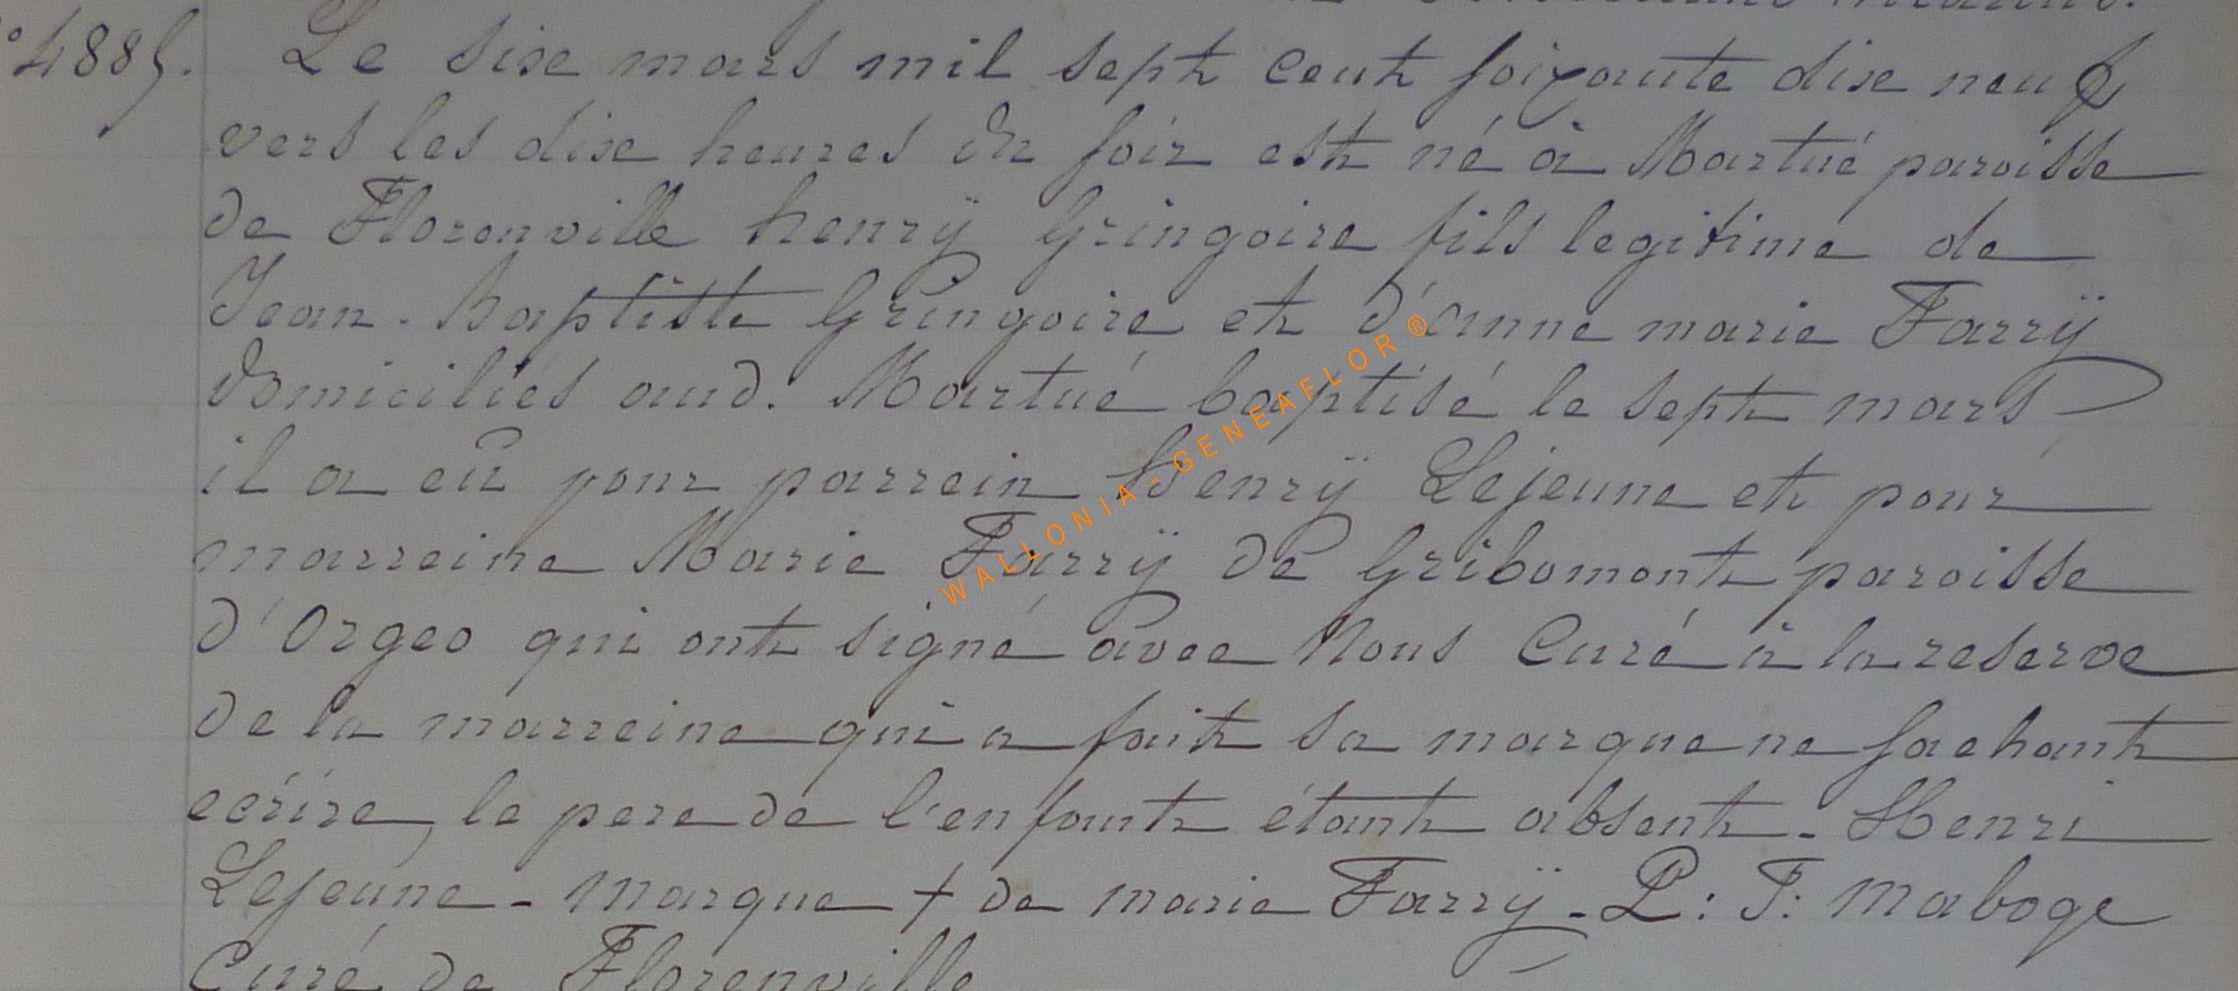 ° 4885. Le six mars mil sept cent soixante dix neuf
vers les dix heures du soir est né à Martué paroisse
de Florenville henrÿ Gringoire fils legitime de
Jean-Baptiste Gringoire et d'anne marie Farrÿ
domiciliés aud. Martué baptisé le sept mars
il a eû pour parrein Henrÿ Lejeune et pour
marreine Marie Farrÿ de Gribomont paroisse
d'Orgeo qui ont signé avec Nous Curé à la reserve
de la marreine qui a fait sa marque ne sachant
ecrire, le pere de l'enfant étant absent - Henri
Lejeune - marque + de marie Farrÿ - P: J: Maboge
Curé de Florenville
WALLONIA-GENEAFLOR®